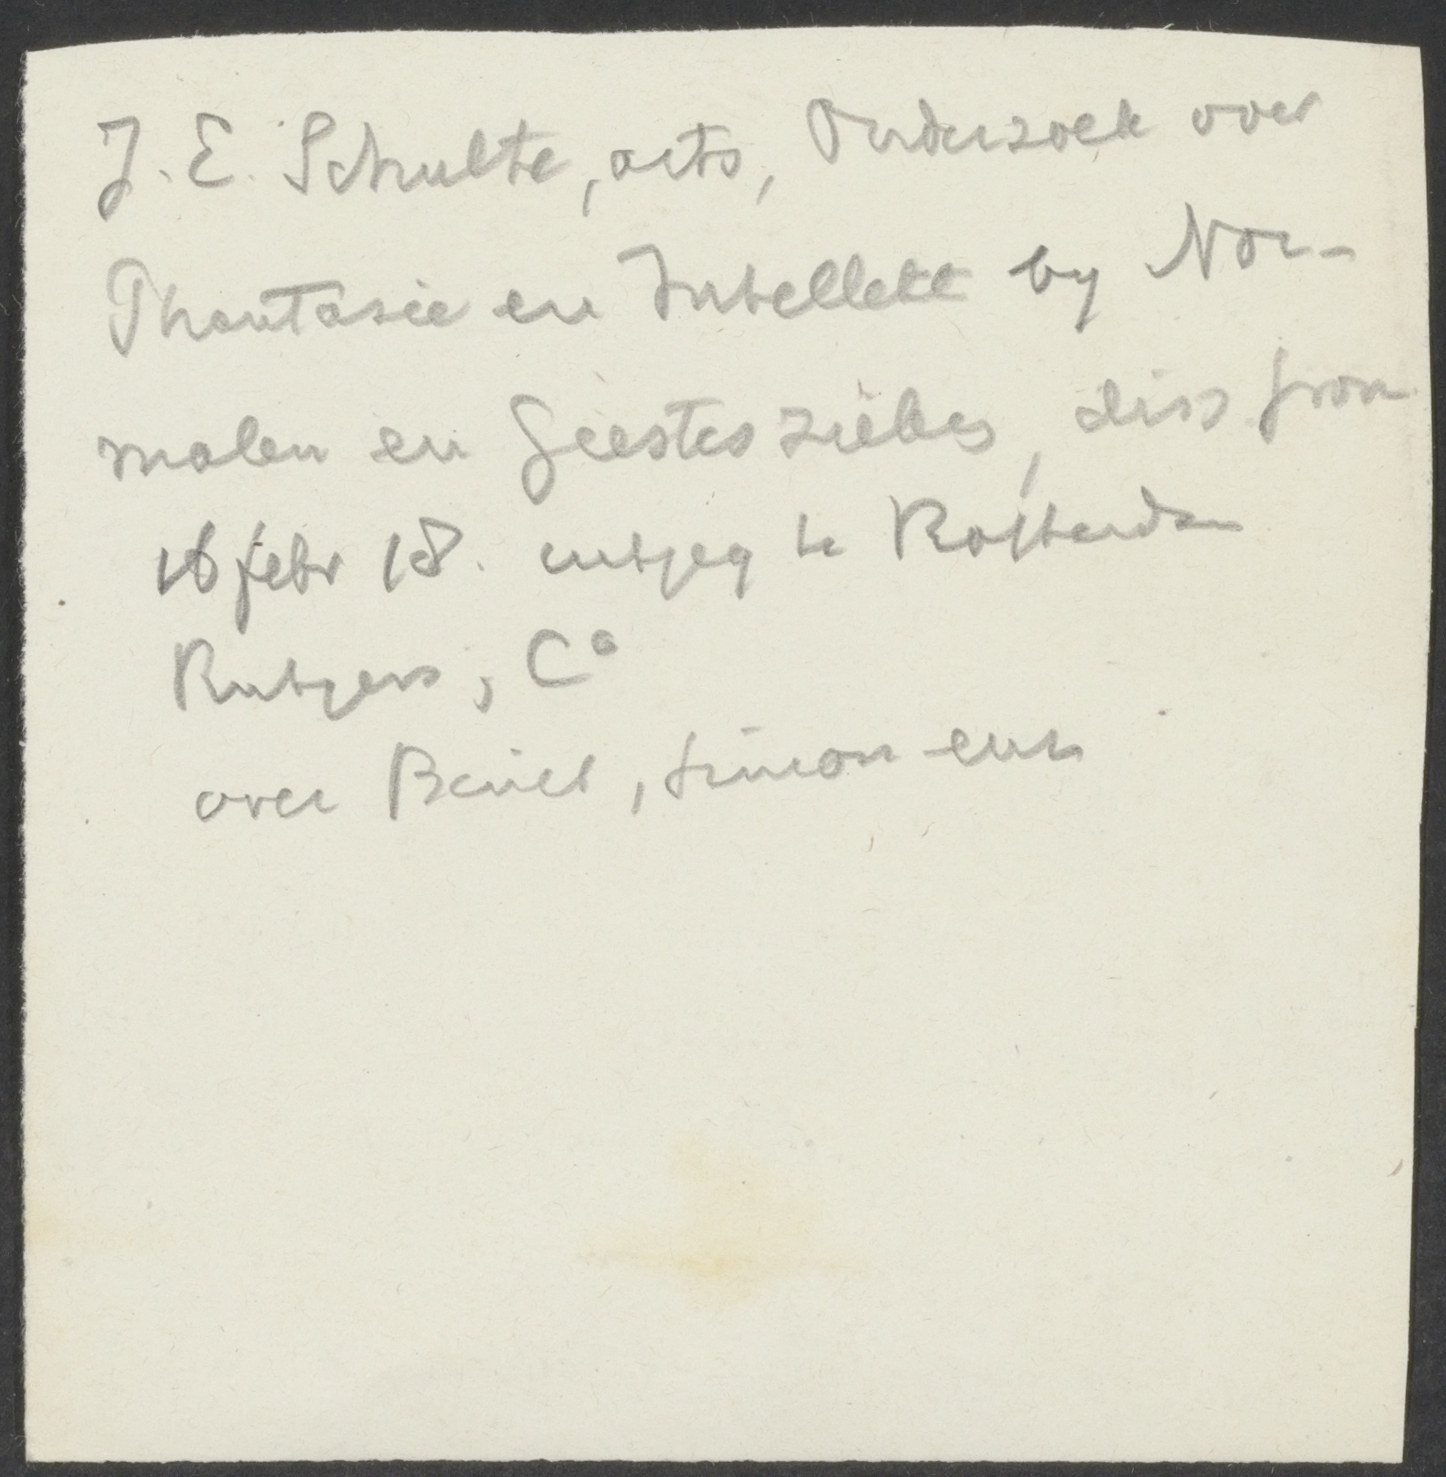 J. E. Schulte, arts, Onderzoek over
Phantasie en Intellekt by Nor-
malen en Geesteszieken, diss Gron
16 febr 18. uitgeg te Rotterdam
Rutgers, Co
over Binet, Simon enz